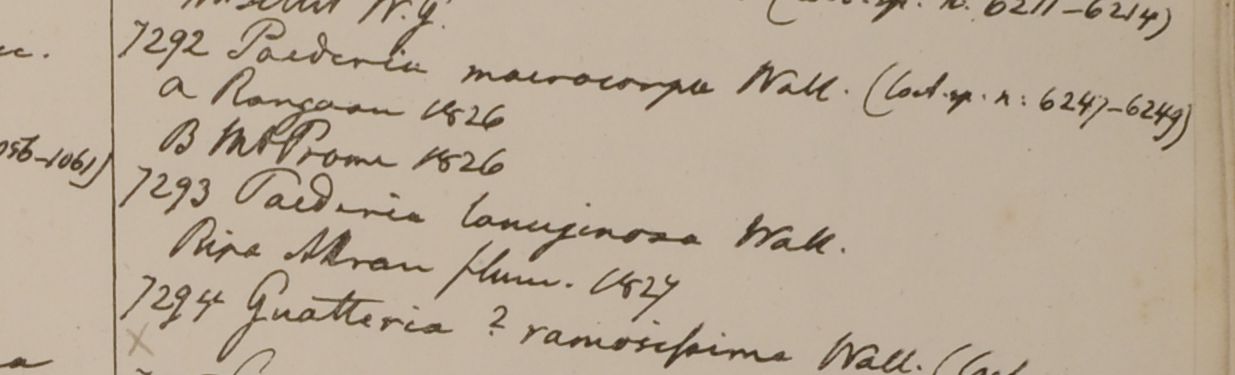 N. G. (Cat. sp. n. 6211–6214)
cc.
7292 Paederia macrocarpa Wall. (Cat. sp. n: 6247–6249)
a Rangoon 1826
B Mt Prome 1826
1061)
7293 Paederia lanuginosa Wall.
Ripa Attran flum. 1827
7294 Guatteria ? ramosissima Wall. (Cat
X
a